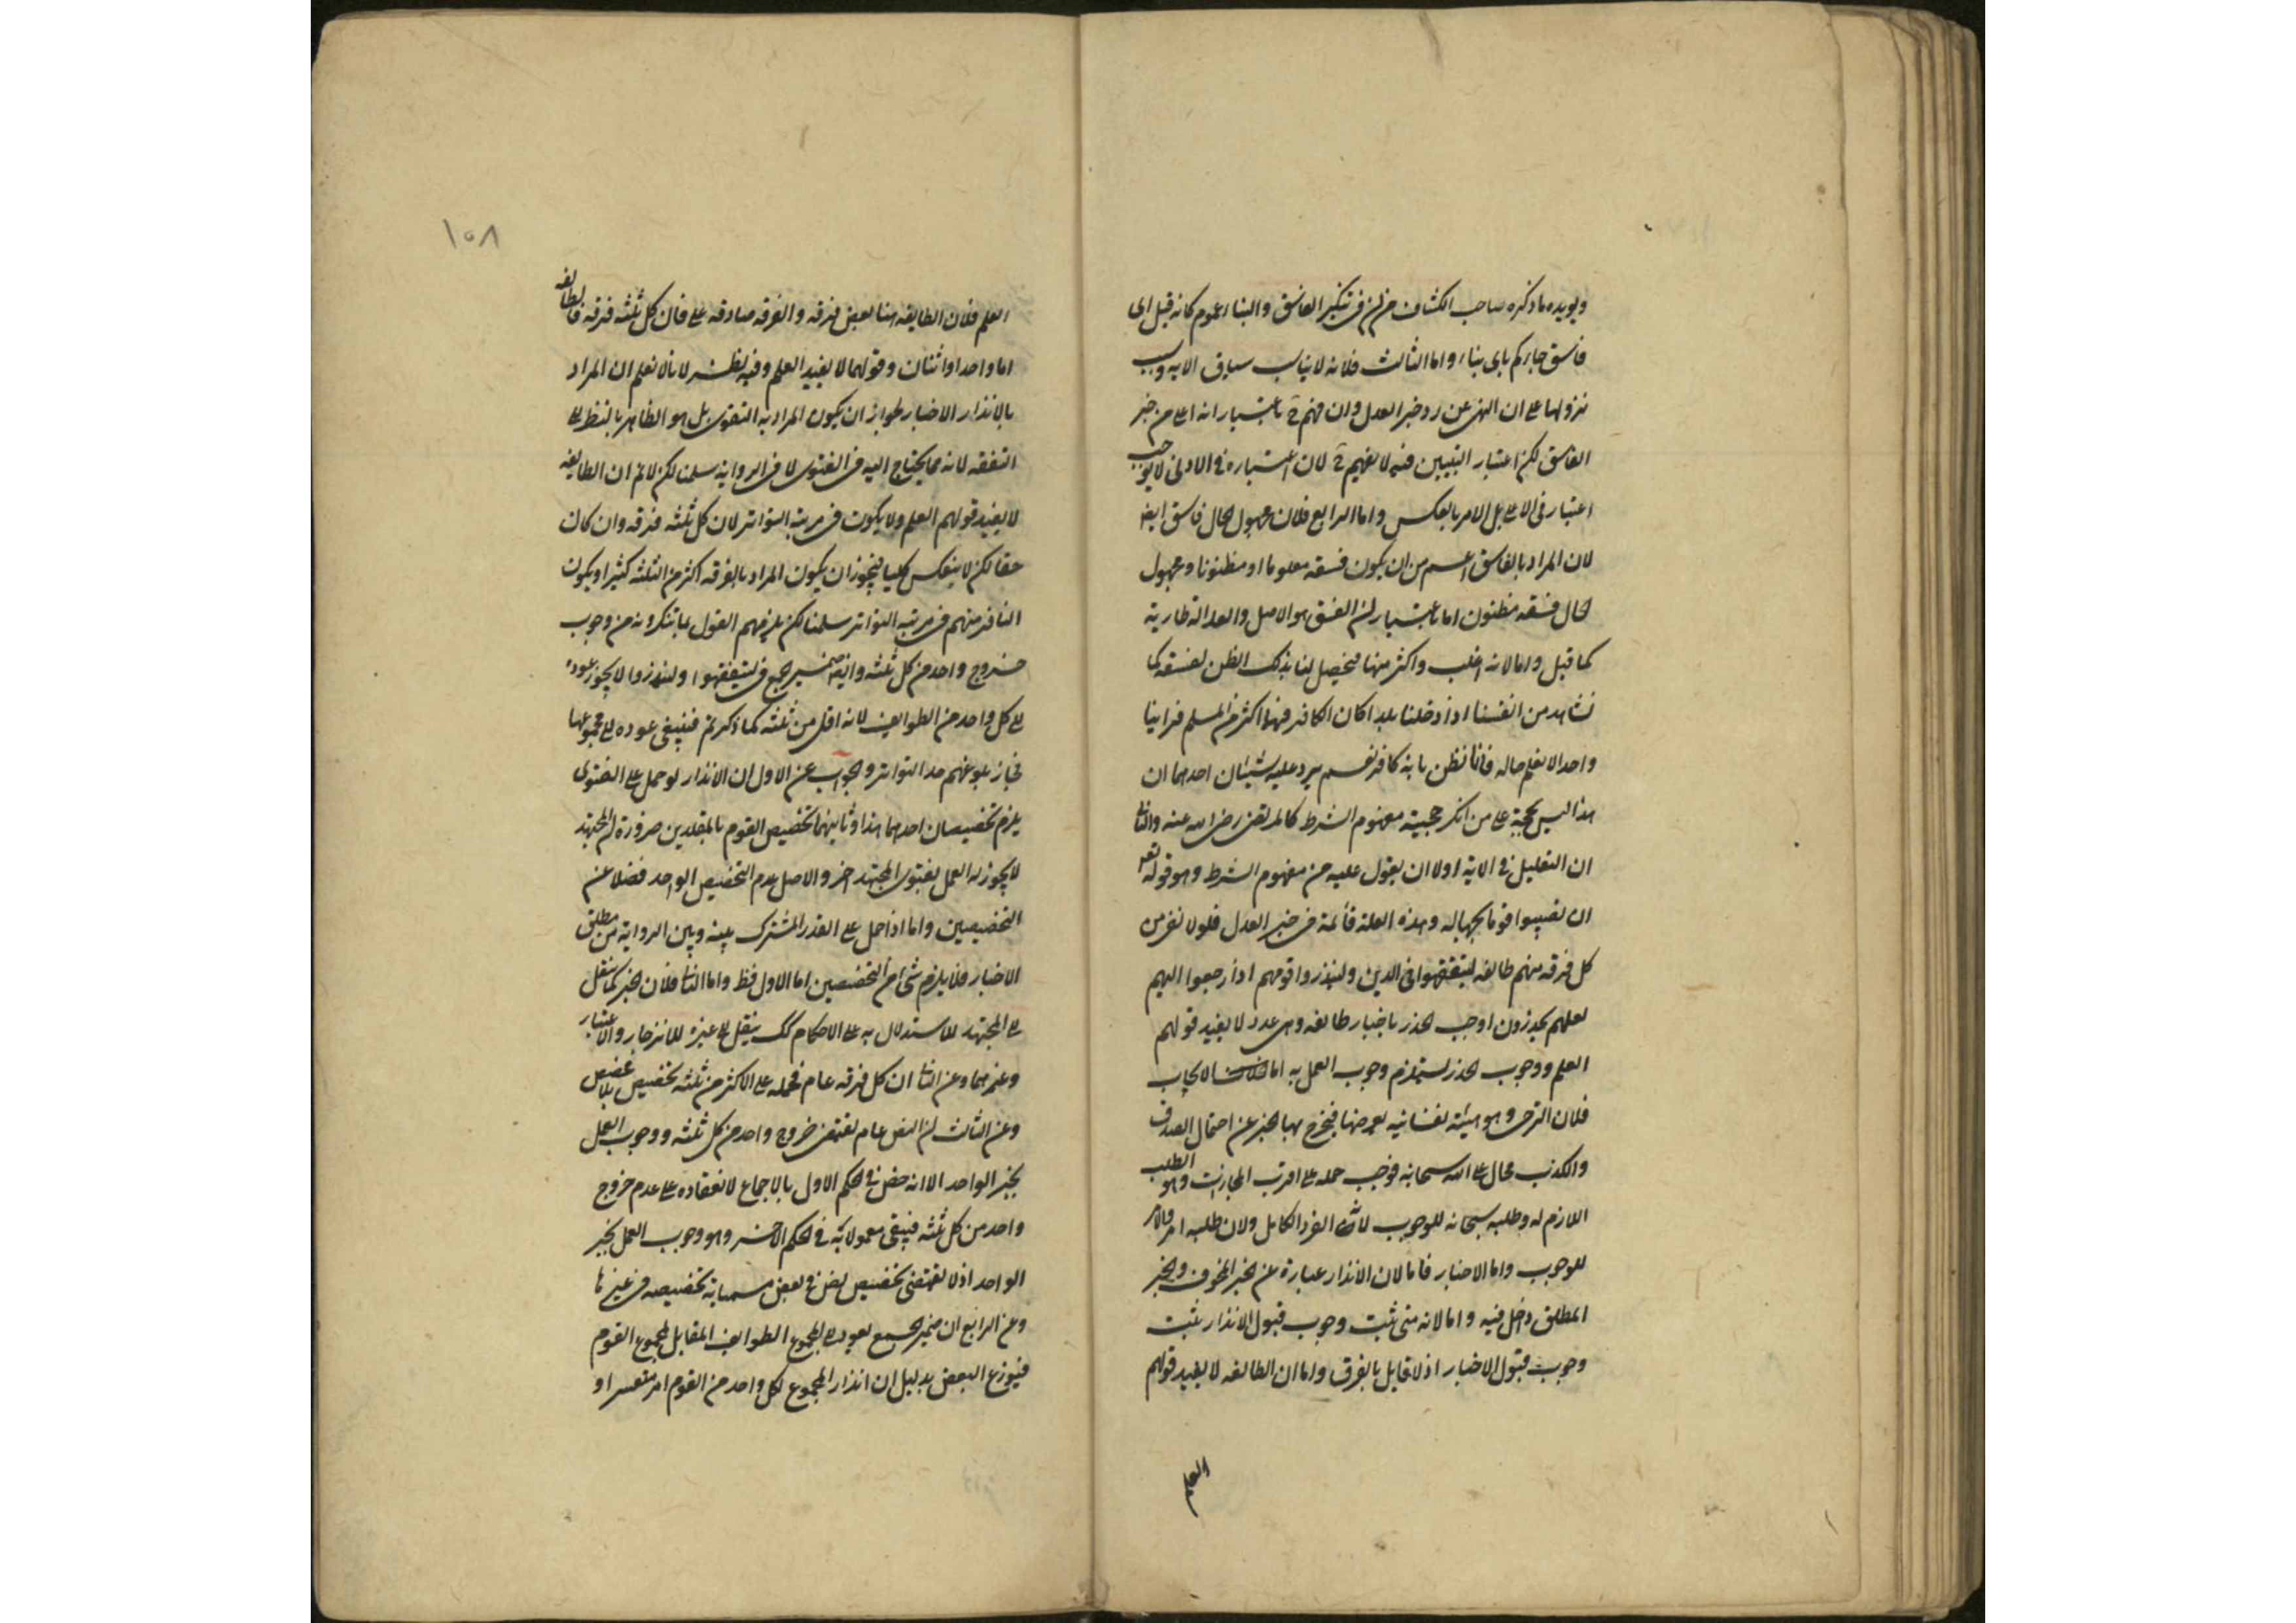 ويويده ما ذكره صاحب الكشاف من ان في تنكير الفاسق والنباء عموم كانه قيل اى
فاسق جاءكم باى نباء واما الثالث فلانه لا يناسب سياق الايه وسبب
نزولها على ان النهى عن رد خبر العدل وان فهم ح باعتبار انه اعلى من خبر
الفاسق لكن اعتبار التبيين فيه لا يفهم ح لان اعتباره في الادنى لا يوجب
اعتباره في الاعلى بل الامر بالعكس واما الرابع فلان مجهول الحال فاسق ايضا
لان المراد بالفاسق اعم من ان يكون فسقه معلوما او مظنونا ومجهول
الحال فسقه مظنون اما باعتبار ان الفسق هو الاصل والعدالة طارية
كما قيل واما لانه اغلب واكثر منها فيحصل لنا بذلك الظن لفسقه كما
نشاهد من انفسنا اذا دخلنا بلدا كان الكافر فيها اكثر من المسلم فراينا
واحدا لا نعلم حاله فانا نظن بانه كافر نعم يرد عليه شيئان احدهما ان
هذا ليس بحجة على من انكر حجية مفهوم الشرط كالمرتضى رضى الله عنه والثانى
ان التعليل في الاية اولا ان يعول عليه من مفهوم الشرط وهو قوله تعه
ان تصيبوا قوما بجهاله وهذه العلة قائمة في خبر العدل فلولا نفر من
كل فرقه منهم طائفه ليتفقهوا في الدين ولينذروا قومهم اذا رجعوا اليهم
لعلهم يحذرون اوجب الحذر باخبار طائفه وهى عدد لا يفيد قولهم
العلم ووجوب الحذر يستلزم وجوب العمل به اما الايجاب
فلان الترجى وهو هيئة نفسانيه يعرضها فيخرج بها الخبر عن احتمال الصدق
والكذب محال على الله سبحانه فوجب حمله على اقرب المجازات وهو الطلب
اللازم له وطلبه سبحانه للوجوب لانه الفرد الكامل ولان طلبه امر والامر
للوجوب واما الاخبار فاما لان الانذار عبارة عن الخبر المخوف والخبر
المطلق داخل فيه واما لانه متى ثبت وجوب قبول الانذار يثبت
وجوب قبول الاخبار اذ لا قايل بالفرق واما ان الطائفه لا يفيد قولهم
العلم
١٥٨
العلم فلان الطايفه هنا بعض فرقه والفرقه صادقه على فان كل ثلثه فرقه فالطايفه
اما واحد او اثنان وقولهما لا يفيد العلم وفيه نظر لانا لا نعلم ان المراد
بالانذار الاخبار لجواز ان يكون المراد به الفتوى بل هو الظاهر بالنظر الى
التفقه لانه مما يحتاج اليه في الفتوى لا في الرواية سلمنا لكن لا نم ان الطايفه
لا يفيد قولهم العلم ولا يكون في مرتبه التواتر لان كل ثلثه فرقه وان كان
حقا لكن لا ينعكس كليا فيجوز ان يكون المراد بالفرقه اكثر من الثلثه كثيرا ويكون
النافر منهم في مرتبه التواتر سلمنا لكن يلزمهم القول بما تنكرونه من وجوب
خروج واحد من كل ثلثه وايضا ضمير الجمع في ليتفقهوا ولينذروا لا يجوز عوده
الى كل واحد من الطوايف لانه اقل من ثلثه كما ذكرتم فينبغى عوده الى مجموعها
فجاز بلوغهم حد التواتر والجواب عن الاول ان الانذار لو حمل على الفتوى
يلزم تخصيصان احدهما هذا وثانيهما تخصيص القوم بالمقلدين ضرورة ان المجتهد
لا يجوز له العمل بفتوى المجتهد اخر والاصل عدم التخصيص الواحد فضلا عن
التخصيصين واما اذا حمل على القدر المشترك بينه وبين الرواية من مطلق
الاخبار فلا يلزم شئ من التخصيصين اما الاول فظ واما الثانى فلان الخبر كما ينقل
الى المجتهد للاستدلال به على الاحكام كك ينقل الى غيره للانزجار والاعتبار
وغيرهما وعن الثانى ان كل فرقه عام فحمله على الاكثر من ثلثه تخصيص بلا مخصص
وعن الثالث ان النص عام يقتضى خروج واحد من كل ثلثه ووجوب العمل
بخبر الواحد الا انه خص في الحكم الاول بالاجماع لانعقاده على عدم خروج
واحد من كل ثلثه فيبقى معمولا به في الحكم الاخر وهو وجوب العمل بخبر
الواحد اذ لا يقتضى تخصيص نص في بعض مسمياته تخصيصه في غيرها
وعن الرابع ان ضمير الجمع يعود الى المجموع الطوايف المقابل لمجموع القوم
فيوزع البعض بدليل ان انذار المجموع لكل واحد من القوم امر متعسر او